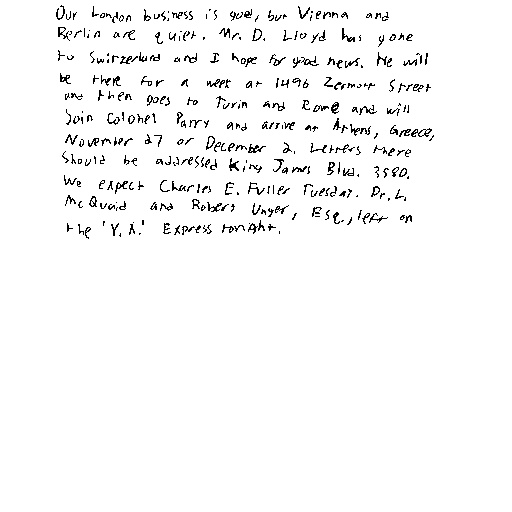 Our London business is good, but Vienna and
Berlin are quiet. Mr. D. Lloyd has gone
to Switzerland and I hope for good news. He will
be there for a week at 1496 Zermott Street
and then goes to Turin and Rome and will
join Colonel Parry and arrive at Athens, Greece,
November 27 or December 2. Letters there
should be addressed King James Blvd. 3580.
We expect Charles E. Fuller Tuesday. Dr. L.
McQuaid and Robert Unger, Esq., left on
the 'Y.X.' Express tonight.